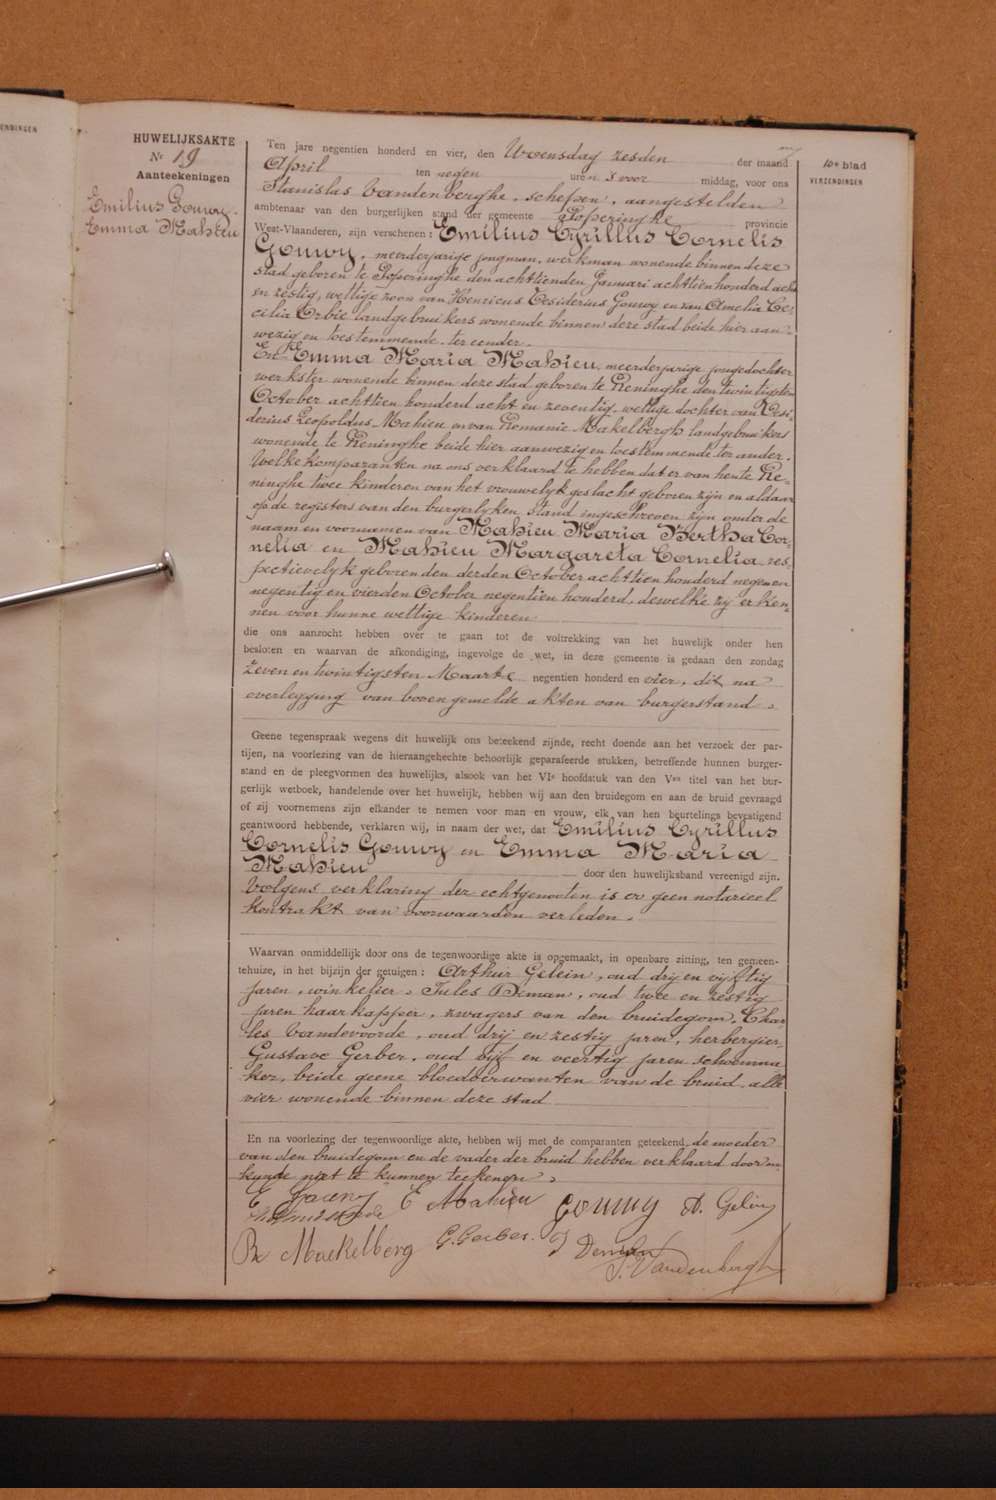 ENDINGEN
HUWELIJKSAKTE
Nr 19
Aanteekeningen
Emilius Gouwy
Emma Mahieu
10e blad
VERZENDINGEN
Ten jare negentien honderd en vier, den Woensdag zesden der maand
April ten negen ure n s voor middag, voor ons
Stanislas Vandenberghe, schepen, aangestelden
ambtenaar van den burgerlijken stand der gemeente Poperinghe provincie
West-Vlaanderen, zijn verschenen: Emilius Cyrillus Cornelis
Gouwy, meerderjarige jongman, werkman wonende binnen deze
stad geboren te Poperinghe den achttienden Januari achttien honderd acht
en zestig, wettige zoon van Henricus Desiderius Gouwy en van Amelia Ce-
cilia Orbie landgebruikers wonende binnen deze stad beide hier aan-
wezig en toestemmende ter eender.
En Emma Maria Mahieu, meerderjarige jongedochter
werkster wonende binnen deze stad geboren te Reninghe den twintigsten
October achttien honderd acht en zeventig, wettige dochter van Desi-
derius Leopoldus Mahieu en van Romanie Makelbergh landgebruikers
wonende te Reninghe beide hier aanwezig en toestemmende ter ander.
Welke komparanten na ons verklaard te hebben dat er van hente Re-
ninghe twee kinderen van het vrouwelyk geslacht geboren zijn en aldaar
op de registers van den burgerlyken stand ingeschreven zyn onder de
naam en voornamen van Mahieu Maria Bertha Cor-
nelia en Mahieu Margareta Cornelia res-
pectievelyk geboren den derden October achttien honderd negen en
negentig en vierden October negentien honderd, dewelke zy erken-
nen voor hunne wettige kinderen
die ons aanzocht hebben over te gaan tot de voltrekking van het huwelijk onder hen
besloten en waarvan de afkondiging, ingevolge de wet, in deze gemeente is gedaan den zondag
zeven en twintigsten Maart negentien honderd en vier, dit na
overlegging van bovengemelde akten van burgerstand.
Geene tegenspraak wegens dit huwelijk ons beteekend zijnde, recht doende aan het verzoek der par-
tijen, na voorlezing van de hieraangehechte behoorlijk geparafeerde stukken, betreffende hunnen burger-
stand en de pleegvormen des huwelijks, alsook van het VIe hoofdstuk van den Ven titel van het bur-
gerlijk wetboek, handelende over het huwelijk, hebben wij aan den bruidegom en aan de bruid gevraagd
of zij voornemens zijn elkander te nemen voor man en vrouw, elk van hen beurtelings bevestigend
geantwoord hebbende, verklaren wij, in naam der wet, dat Emilius Cyrillus
Cornelis Gouwy en Emma Maria
Mahieu door den huwelijksband vereenigd zijn.
Volgens verklaring der echtgenooten is er geen notarieel
kontrakt van voorwaarden verleden.
Waarvan onmiddellijk door ons de tegenwoordige akte is opgemaakt, in openbare zitting, ten gemeen-
tehuize, in het bijzijn der getuigen: Arthur Gelein, oud drij en vijftig
jaren, winkelier, Jules Deman, oud twee en zestig
jaren haarkapper, zwagers van den bruidegom, Char
les Vandevoorde, oud drij en zestig jaren, herbergier,
Gustave Gerber, oud vijf en veertig jaren schoenma
ker, beide geene bloedverwanten van de bruid, alle
vier wonende binnen deze stad
En na voorlezing der tegenwoordige akte, hebben wij met de comparanten geteekend, de moeder
van den bruidegom en de vader der bruid hebben verklaard door on
kunde niet te kunnen teekenen.
E Mahieu Gouwy A. Gelein
R Maekelberg G. Gerber. J Deman
S. Vandenberghe